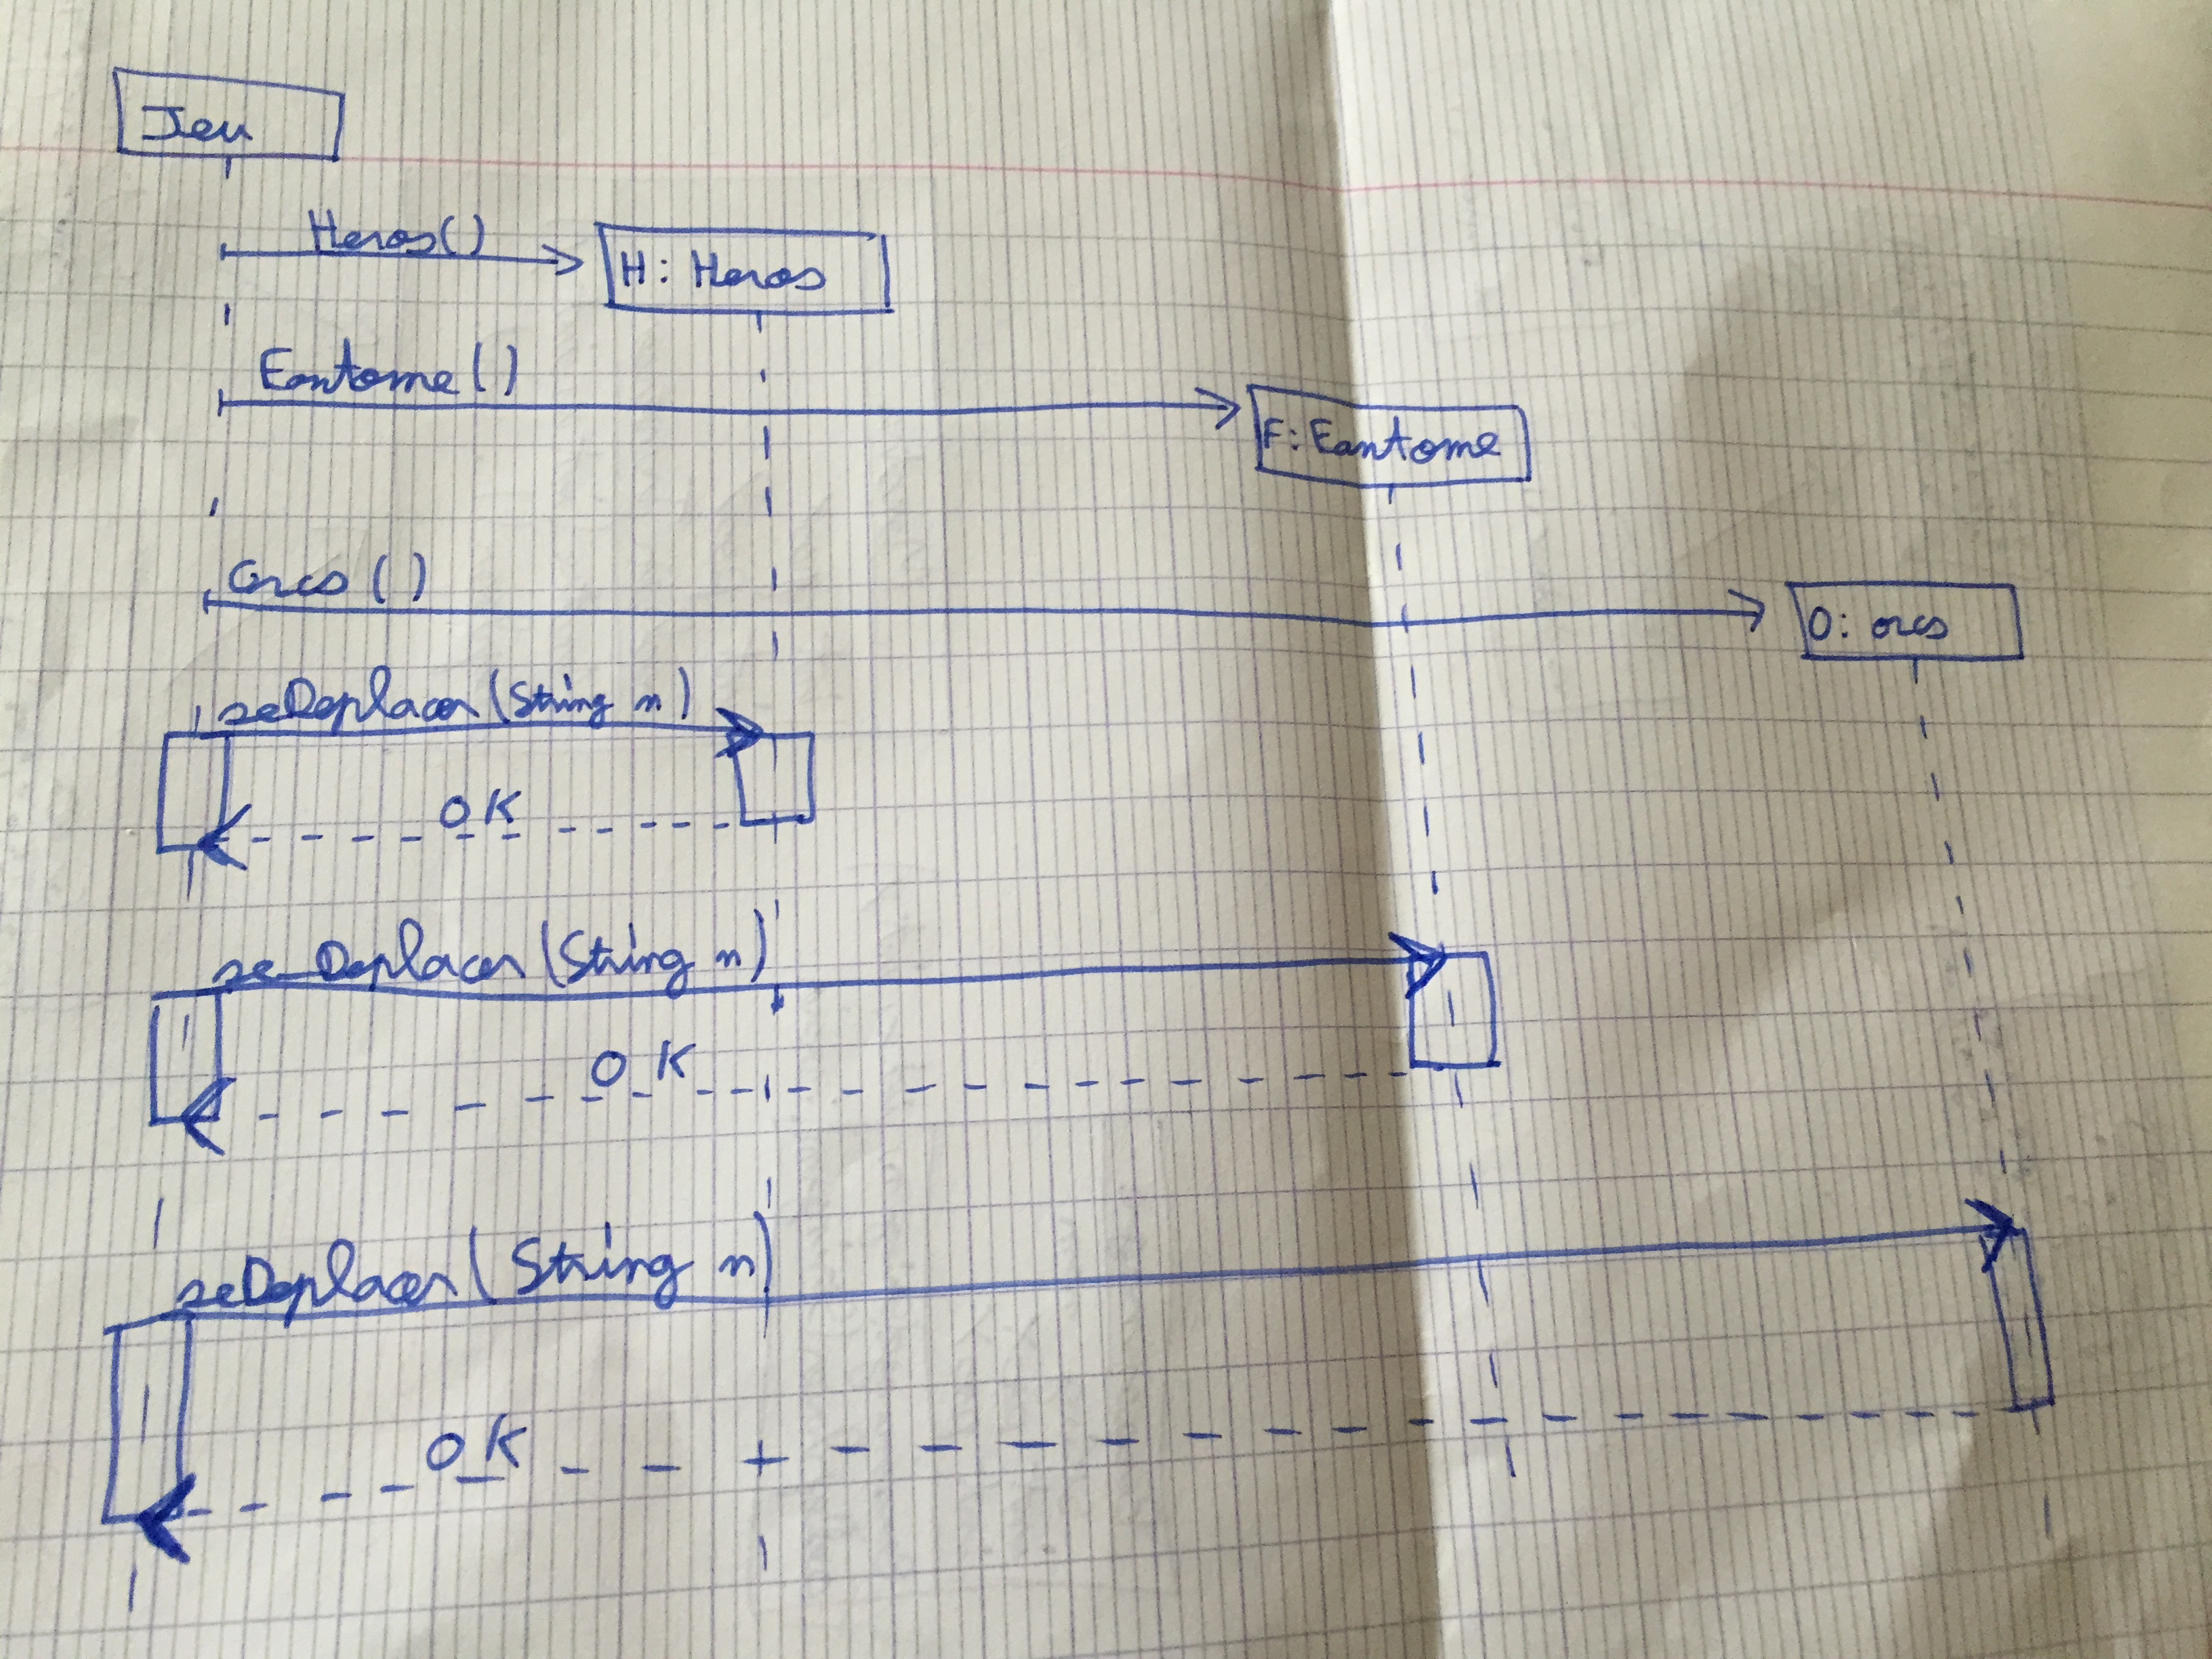 Jeu
Heros()
H: Heros
Fantome()
F: Fantome
Orcs()
O: orcs
seDeplacer(String m)
OK
seDeplacer(String m)
OK
seDeplacer(String m)
OK